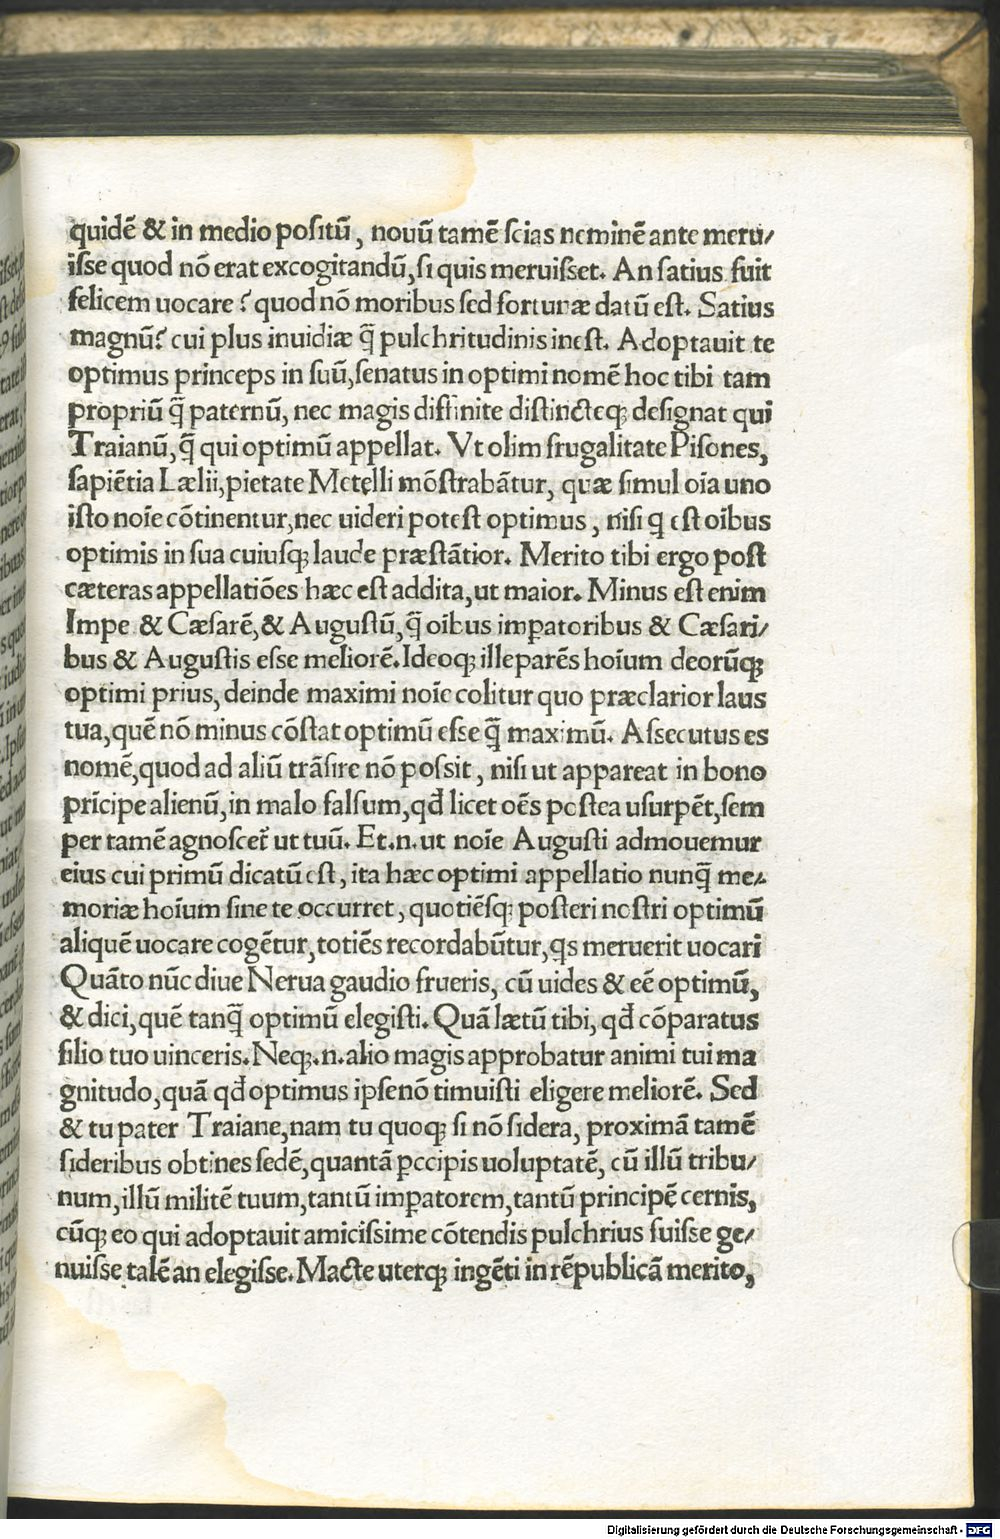 quidē & in medio poſitū, nouū tamē ſcias neminē ante meru/
iſſe quod nō erat excogitandū, ſi quis meruiſſet. An ſatius fuit
felicem uocare? quod nō moribus ſed fortunæ datū eſt. Satius
magnū? cui plus inuidiæ q̄ pulchritudinis ineſt. Adoptauit te
optimus princeps in ſuū, ſenatus in optimi nomē hoc tibi tam
propriū q̄ paternū, nec magis diffinite diſtincteqꝫ deſignat qui
Traianū, q̄ qui optimū appellat. Vt olim frugalitate Piſones,
ſapiētia Lælii, pietate Metelli mōſtrabātur, quæ ſimul oīa uno
iſto noīe cōtinentur, nec uideri poteſt optimus, niſi q eſt oībus
optimis in ſua cuiuſqꝫ laude præſtātior. Merito tibi ergo poſt
cæteras appellatiōes hæc eſt addita, ut maior. Minus eſt enim
Impe & Cæſarē, & Auguſtū, q̄ oibus imꝑatoribus & Cæſari/
bus & Auguſtis eſſe meliorē. Ideoqꝫ ille parēs hoīum deorūqꝫ
optimi prius, deinde maximi noīe colitur quo præclarior laus
tua, quē nō minus cōſtat optimū eſſe q̄ maximū. Aſſecutus es
nomē, quod ad aliū trāſire nō poſſit, niſi ut appareat in bono
prīcipe alienū, in malo falſum, qđ licet oēs poſtea uſurpēt, ſem
per tamē agnoſcet̃ ut tuū. Et .n. ut noīe Auguſti admouemur
eius cui primū dicatū eſt, ita hæc optimi appellatio nunq̄ me/
moriæ hoīum ſine te occurret, quotiēſqꝫ poſteri noſtri optimū
aliquē uocare cogētur, totiēs recordabūtur, qs meruerit uocari
Quāto nūc diue Nerua gaudio frueris, cū uides & eē optimū,
& dici, quē tanq̄ optimū elegiſti. Quā lætū tibi, qđ cōparatus
filio tuo uinceris. Neqꝫ .n. alio magis approbatur animi tui ma
gnitudo, quā qđ optimus ipſe nō timuiſti eligere meliorē. Sed
& tu pater Traiane, nam tu quoqꝫ ſi nō ſidera, proximā tamē
ſideribus obtines ſedē, quantā ꝑcipis uoluptatē, cū illū tribu/
num, illū militē tuum, tantū imꝑatorem, tantū principē cernis,
cūqꝫ eo qui adoptauit amiciſſime cōtendis pulchrius fuiſſe ge/
nuiſſe talē an elegiſſe. Macte uterqꝫ ingēti in rēpublicā merito,
Digitalisierung gefördert durch die Deutsche Forschungsgemeinschaft - DFG